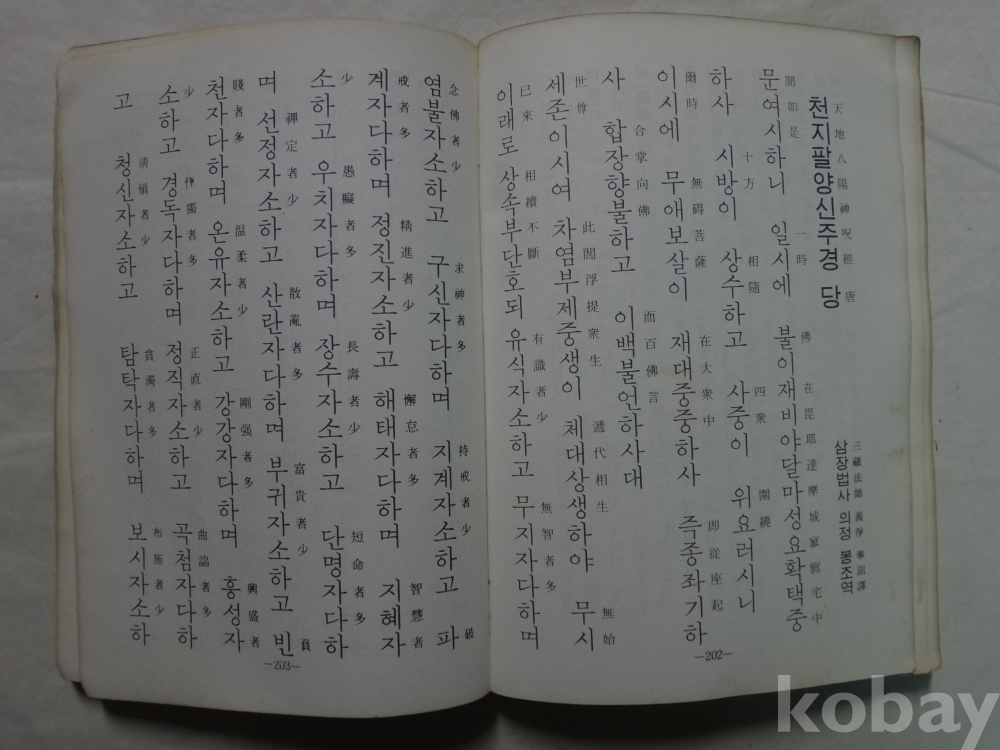 天地八陽神呪經 唐
천지팔양신주경 당
三藏法師 義淨 奉詔譯
삼장법사 의정 봉조역
聞如是 一時 佛 在毘耶達摩城寥廓宅中
문여시하니 일시에 불이 재비야달마성요확택중
十方 相隨 四衆 圍繞
하사 시방이 상수하고 사중이 위요러시니
爾時 無碍菩薩 在大衆中 即從座起
이시에 무애보살이 재대중중하사 즉종좌기하
合掌向佛 而百佛言
사 합장향불하고 이백불언하사대
世尊 此閻浮提衆生 遞代相生 無始
세존이시여 차염부제중생이 체대상생하야 무시
已來 相續不斷 有識者少 無智者多
이래로 상속부단호되 유식자소하고 무지자다하며
—202—
念佛者少 求神者多 持戒者少 破
염불자소하고 구신자다하며 지계자소하고 파
戒者多 精進者少 懈怠者多 智慧者
계자다하며 정진자소하고 해태자다하며 지혜자
少 愚癡者多 長壽者少 短命者多
소하고 우치자다하며 장수자소하고 단명자다하
禪定者少 散亂者多 富貴者少 貧
며 선정자소하고 산란자다하며 부귀자소하고 빈
賤者多 温柔者少 剛强者多 興盛者
천자다하며 온유자소하고 강강자다하며 흥성자
少 惸獨者多 正直者少 曲諂者多
소하고 경독자다하며 정직자소하고 곡첨자다하
淸愼者少 貪濁者多 布施者少
고 청신자소하고 탐탁자다하며 보시자소하
—203—
kobay